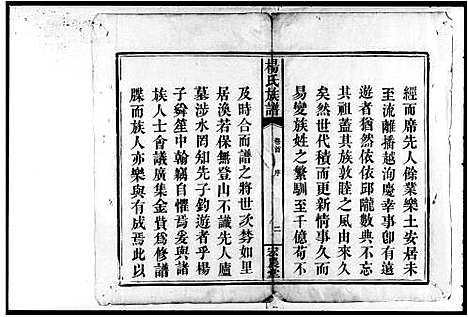 經而席先人餘業樂土安居未
至流離播越洵慶幸事卽有遠
遊者猶然依依邱隴數典不忘
其祖蓋其族敦睦之風由來
矣然世代積而更新情事久
易變族姓之繁駸至千億苟不
楊氏族譜
卷首 序
二
及時合而譜之將世次棼如里
居渙若保無登山不識先人廬
墓涉水罔知先子釣遊者乎楊
子舜笙中翰竊自懼焉爰與諸
族人士會議廣集金貲爲修譜
牒而族人亦樂與有成焉此以